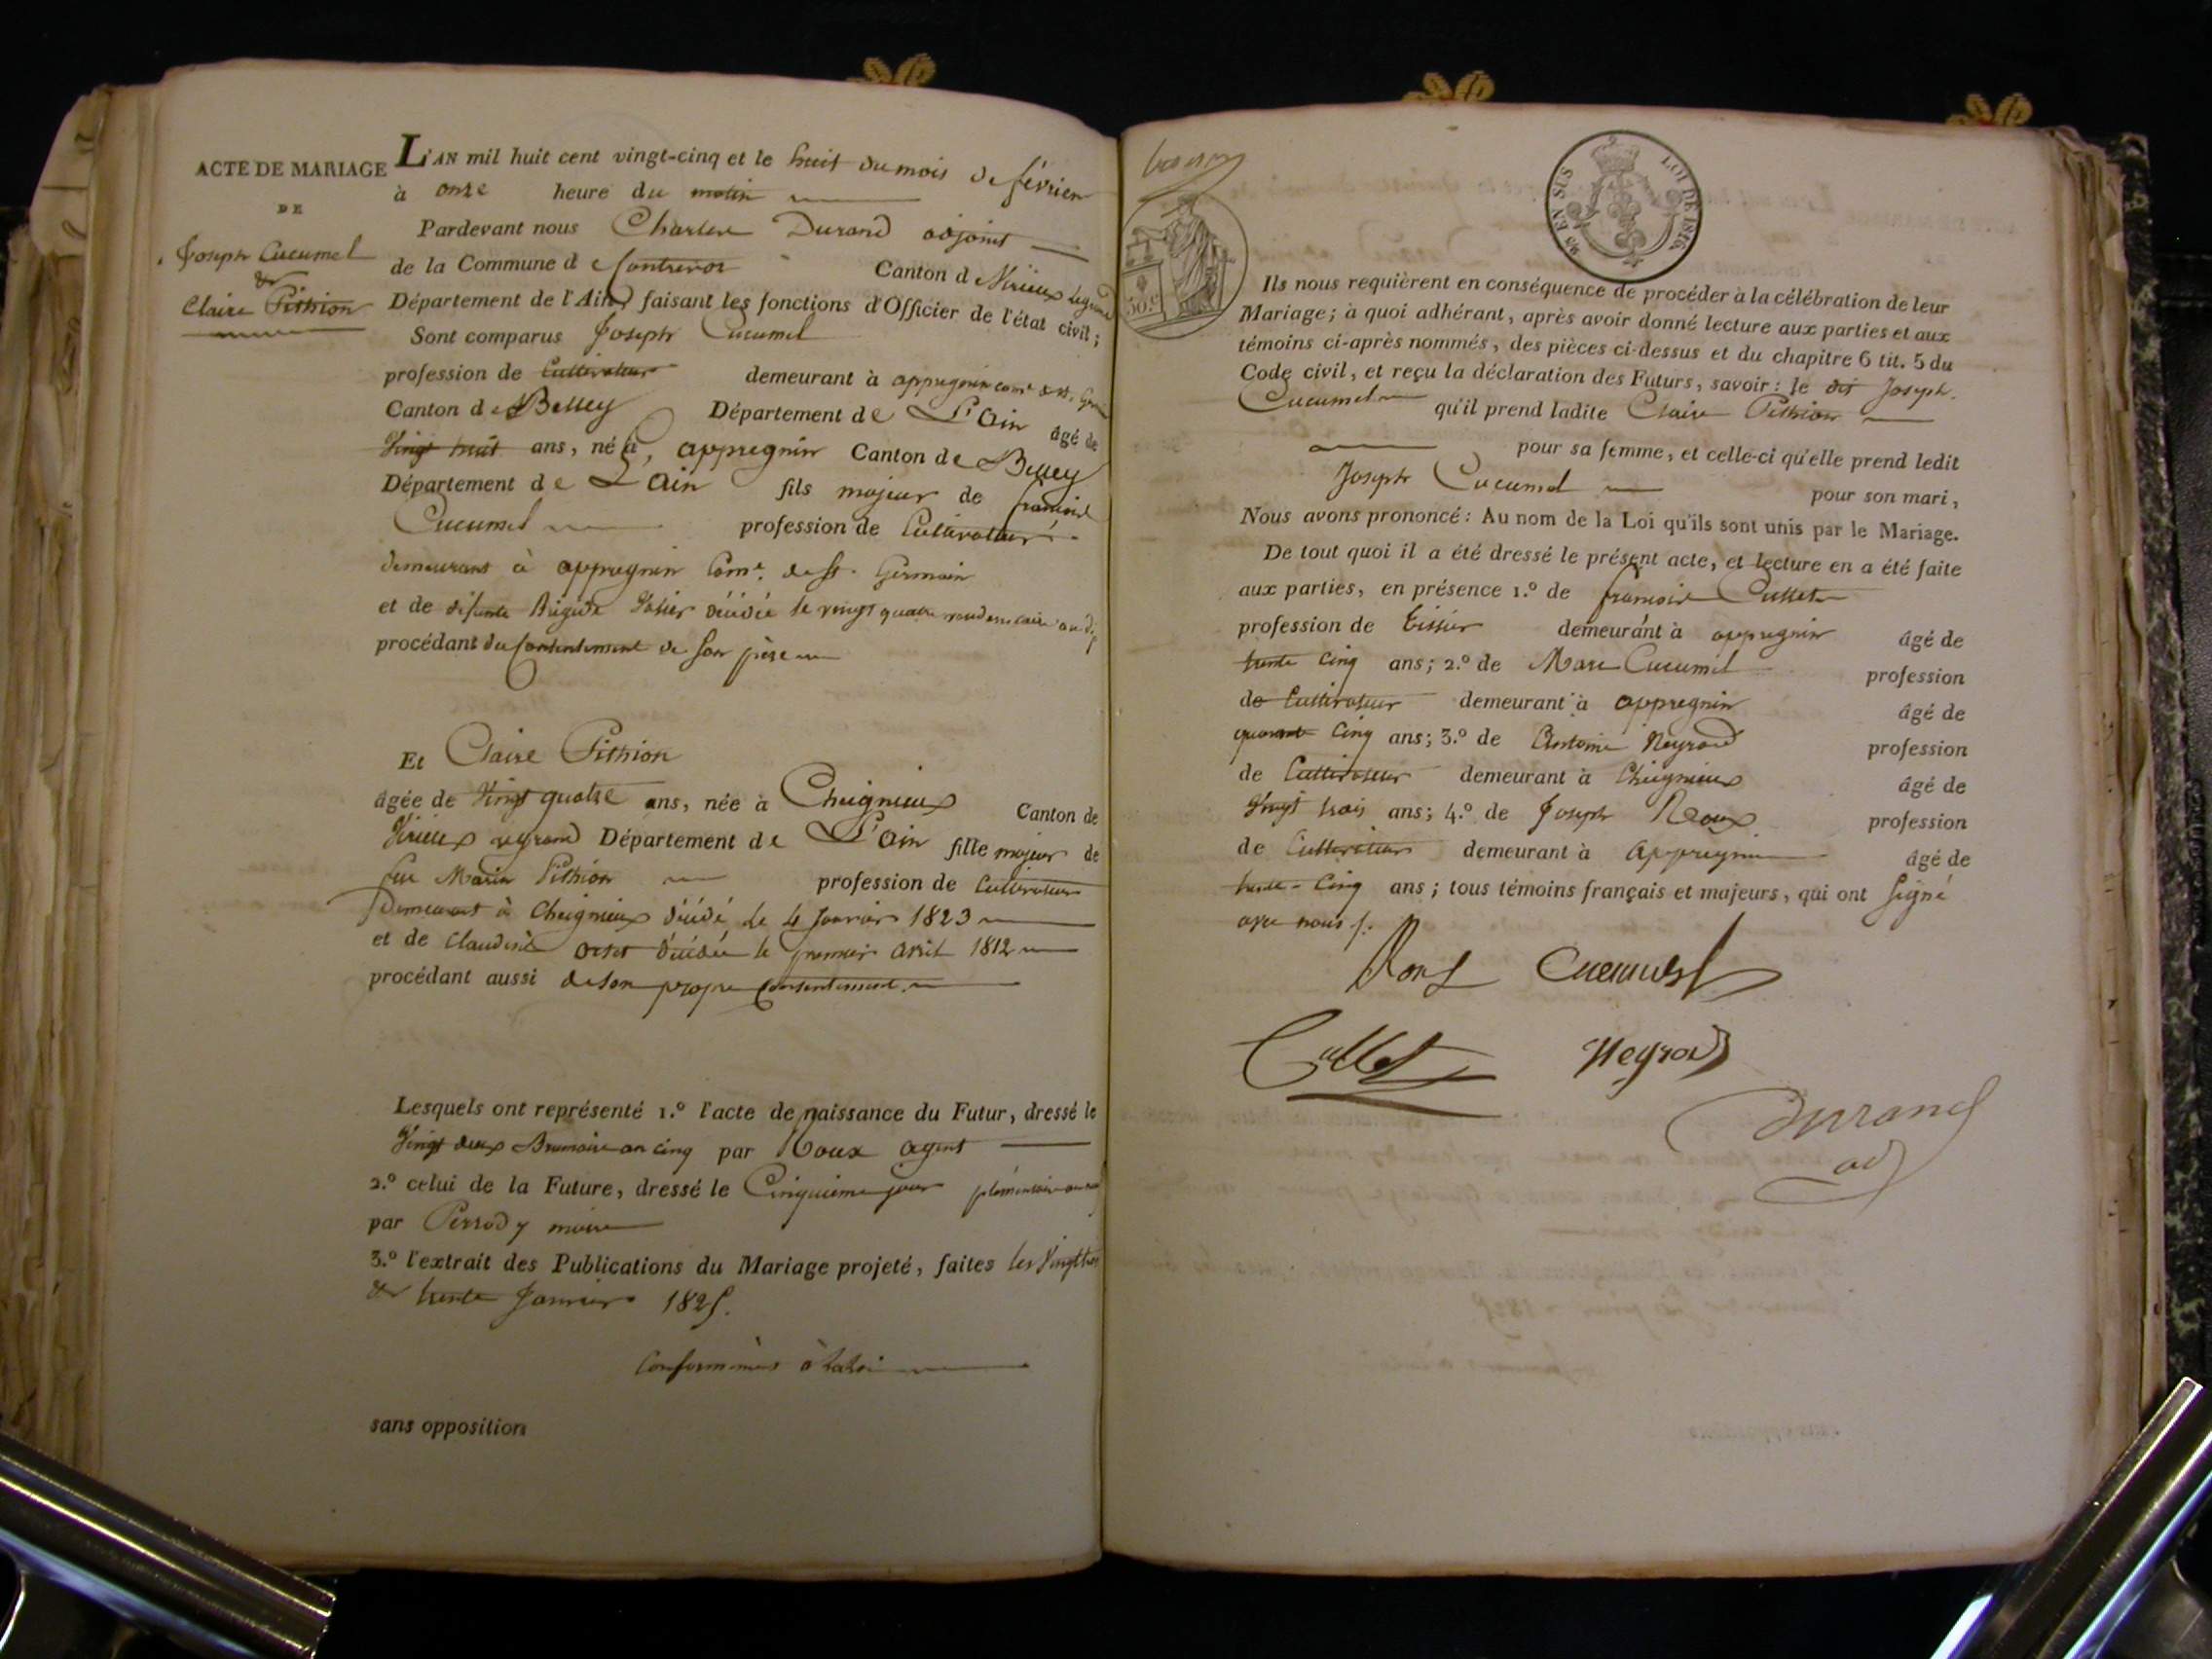 ACTE DE MARIAGE
DE
Joseph Cucumel
&
Claire Pithion
L'AN mil huit cent vingt-cinq et le huit du mois de février
à onze heure du matin
Pardevant nous Charles Durand adjoint
de la Commune de Contrevoz Canton de Virieux legrand
Département de l'Ain, faisant les fonctions d'Officier de l'état civil;
Sont comparus Joseph Cucumel
profession de Cultivateur demeurant à appregnin com.e de st. Germ
Canton de Belley Département de L'ain âgé de
Vingt huit ans, né à appregnin Canton de Belley
Département de L'ain fils majeur de francois
Cucumel profession de Cultivateur
demeurant à appregnin Com.e de st. Germain
et de défunte Brigide décédée le vingt quatre an dix
procédant du Consentement de Son père
Et Claire Pithion
âgée de Vingt quatre ans, née à Cheignieux Canton de
Virieux legrand Département de L'ain fille majeur de
feu Marin Pithion profession de Cultivateur
Demeurant à Cheignieux décédé le 4 Janvier 1823
et de Claudine décédée le premier avril 1812
procédant aussi de son propre Consentement
Lesquels ont représenté 1.º l'acte de naissance du Futur, dressé le
Vingt deux Brumaire an cinq par Roux agent
2.º celui de la Future, dressé le Cinquième jour plémentaire
par Perrody maire
3.º l'extrait des Publications du Mariage projeté, faites les Vingt trois
& trente Janvier 1825.
Conformémens à la Loi
sans opposition
50.c
95 EN SUS LOI DE 1816
Ils nous requièrent en conséquence de procéder à la célébration de leur
Mariage; à quoi adhérant, après avoir donné lecture aux parties et aux
témoins ci-après nommés, des pièces ci-dessus et du chapitre 6 tit. 5 du
Code civil, et reçu la déclaration des Futurs, savoir: le dit Joseph
Cucumel qu'il prend ladite Claire Pithion
pour sa femme, et celle-ci qu'elle prend ledit
Joseph Cucumel pour son mari,
Nous avons prononcé: Au nom de la Loi qu'ils sont unis par le Mariage.
De tout quoi il a été dressé le présent acte, et lecture en a été faite
aux parties, en présence 1.º de francois Cullet
profession de tissier demeurant à appregnin âgé de
trente cinq ans; 2.º de Marc Cucumel profession
de Cultivateur demeurant à appregnin âgé de
quarante Cinq ans; 3.º de Antoine Neyroud profession
de Cultivateur demeurant à Cheignieux âgé de
Vingt trois ans; 4.º de Joseph Roux profession
de Cultivateur demeurant à Appregnin âgé de
trente-Cinq ans; tous témoins français et majeurs, qui ont Signé
avec nous /.
Roux Cucumel
Cullet Neyroud
Durand
adj